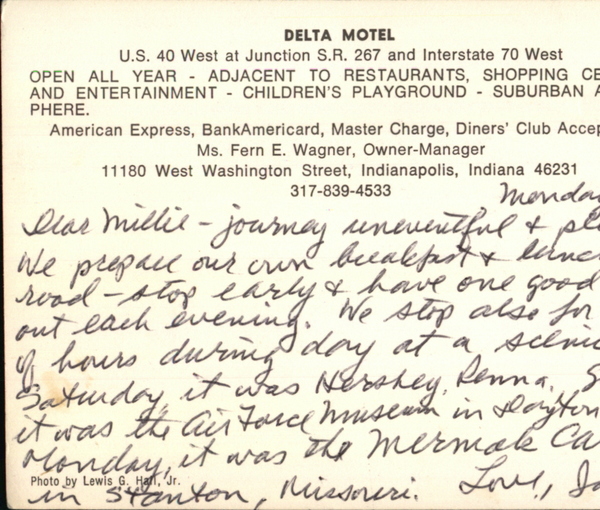 DELTA MOTEL
U.S. 40 West at Junction S.R. 267 and Interstate 70 West
OPEN ALL YEAR - ADJACENT TO RESTAURANTS, SHOPPING CE
AND ENTERTAINMENT - CHILDREN'S PLAYGROUND - SUBURBAN A
PHERE.
American Express, BankAmericard, Master Charge, Diners' Club Accep
Ms. Fern E. Wagner, Owner-Manager
11180 West Washington Street, Indianapolis, Indiana 46231
317-839-4533
Monday
Dear Millie - journey uneventful & ple
We prepare our own breakfast & lunc
road - stop early & have one good
out each evening. We stop also for
of hours during day at a scenic
Saturday, it was Hershey, Penna. S
it was the Air Force Museum in Dayton
Monday, it was the Mermak Ca
Photo by Lewis G. Hall, Jr.
in Stanton, Missouri. Love,